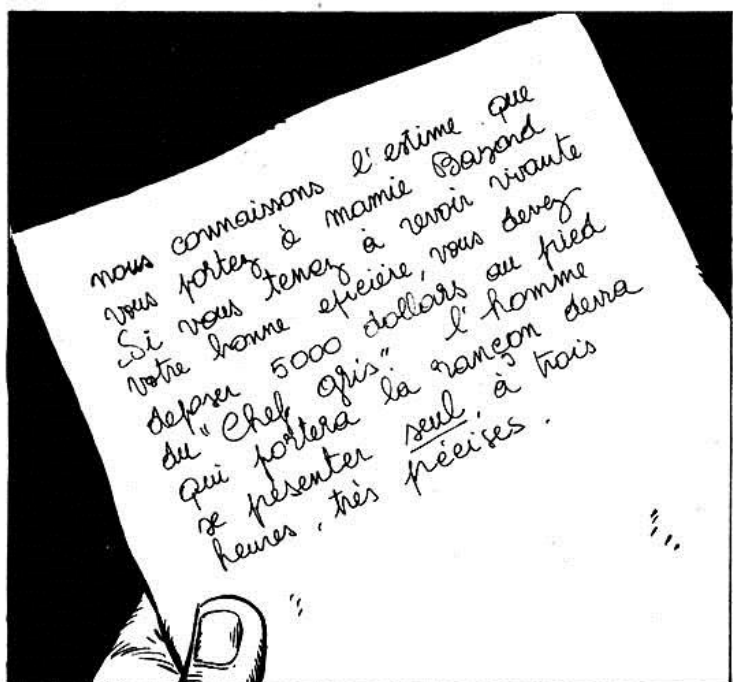 nous connaissons l'estime que
vous portez à mamie Bazond
Si vous tenez à revoir vivante
votre bonne epicière, vous devez
deposer 5000 dollars au pied
du "Chef gris" l'homme
qui portera la rançon devra
se présenter seul, à trois
heures, très précises.